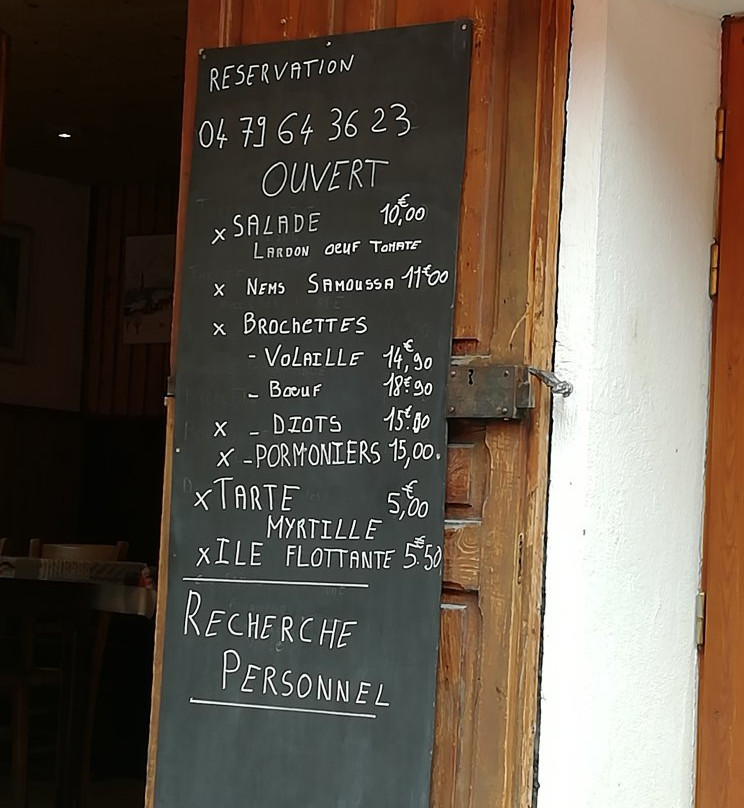 RESERVATION
04 79 64 36 23
OUVERT
x SALADE 10,€00
LARDON OEUF TOMATE
x NEMS SAMOUSSA 11€00
x BROCHETTES
- VOLAILLE 14,€90
- BŒUF 18€.90
x - DIOTS 15€.00
x - PORMONIERS 15,00.
x TARTE 5,€00
MYRTILLE
x ILE FLOTTANTE 5€.50
RECHERCHE
PERSONNEL